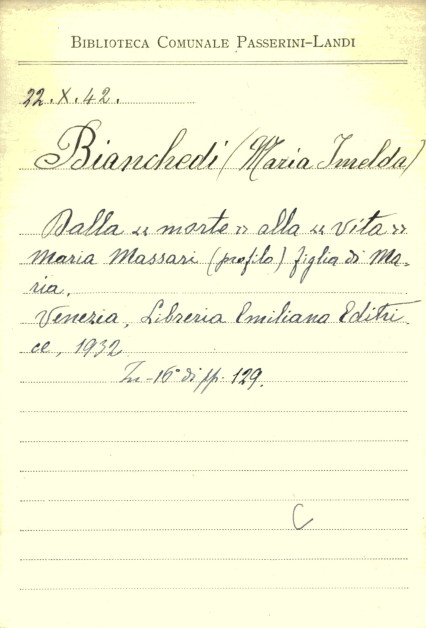 BIBLIOTECA COMUNALE PASSERINI-LANDI
22.X.42.
Bianchedi (Maria Imelda)
Dalla « morte » alla « vita »
Maria Massari (profilo) figlia di Ma-
ria.
Venezia, Libreria Emiliana Editri-
ce, 1932
In-16° di pp. 129.
C